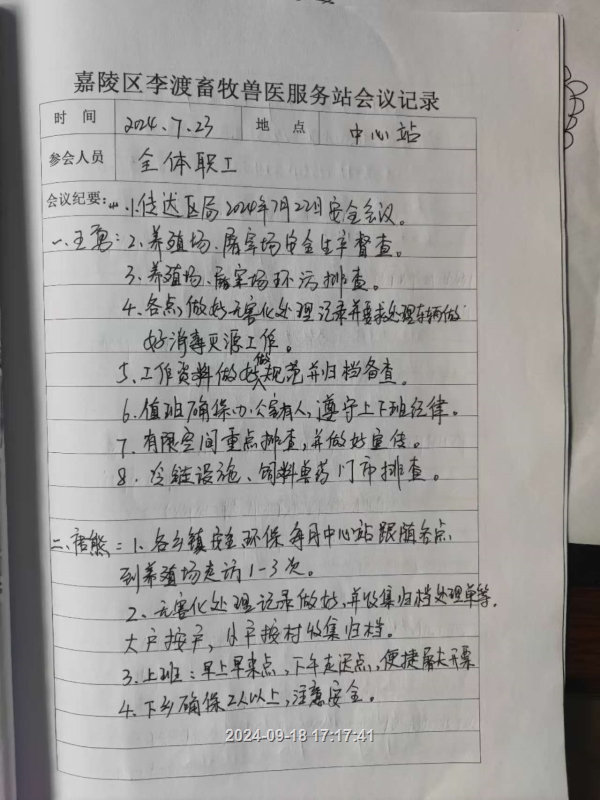 嘉陵区李渡畜牧兽医服务站会议记录
时 间 2024.7.23 地 点 中心站
参会人员 全体职工
会议纪要: 1.传达区局2024年7月22日安全会议。
一、王勇:2、养殖场、屠宰场安全生产督查。
3、养殖场、屠宰场环污排查。
4、各点,做好无害化处理记录并要求处理车辆做
好消毒灭源工作。
5、工作资料做好做规范并归档备查。
6、值班确保办公室有人,遵守上下班纪律。
7、有限空间重点排查,并做好宣传。
8、冷链设施、饲料兽药门市排查。
二、唐熊:1、各乡镇安全环保每月中心站跟随各点
到养殖场走访1-3次。
2、无害化处理记录做好,并收集归档处理单等,
大户按户,小户按村收集归档。
3、上班:早上早来点,下午走迟点,便捷屠夫开票
4、下乡确保2人以上,注意安全。
2024-09-18 17:17:41